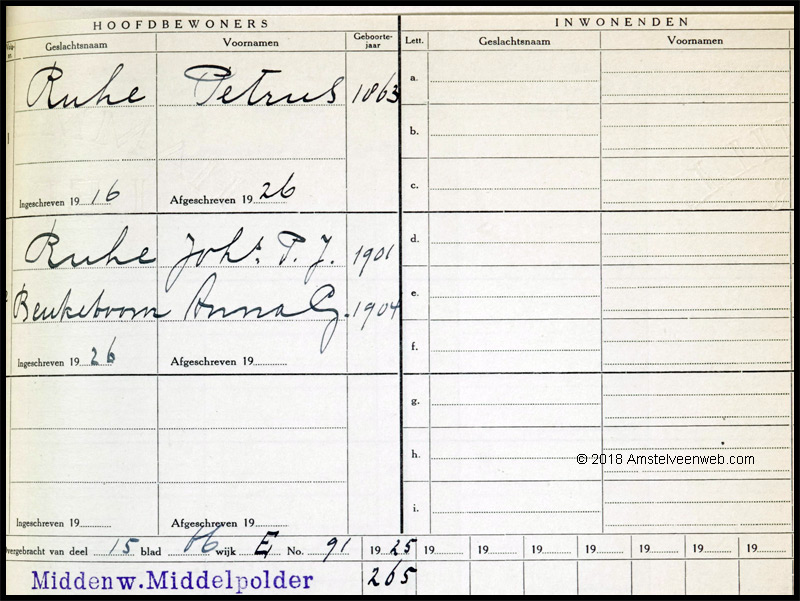 HOOFDBEWONERS INWONENDEN
Geslachtsnaam Voornamen Geboorte-jaar Lett. Geslachtsnaam Voornamen
Ruhe Petrus 1863 a.
1 b.
c.
Ingeschreven 19 16 Afgeschreven 19 26
Ruhe Johs. P. J. 1901 d.
2 Beukeboom Anna 1904 e.
f.
Ingeschreven 19 26 Afgeschreven 19
g.
h.
© 2018 Amstelveenweb.com
i.
Ingeschreven 19 Afgeschreven 19
vergebracht van deel 15 blad 66 wijk E No. 91 19 25 19 19 19 19 19 19 19
Middenw. Middelpolder 265